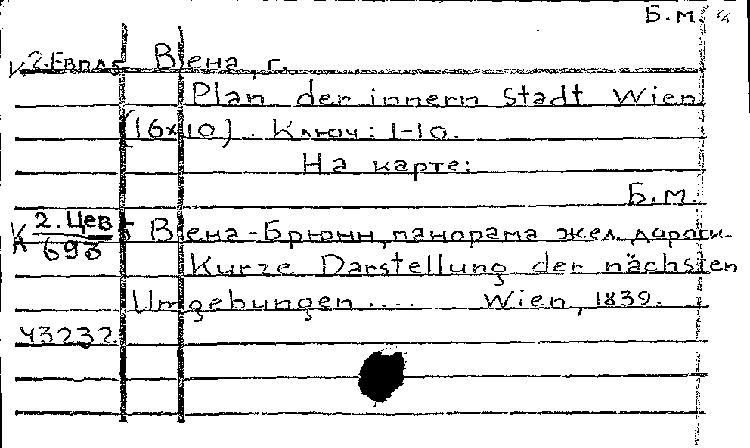 Б.м.
К 2.Евпл5 Вена, г.
Plan der innern Stadt Wien
(16х10). Ключ: 1-10.
На карте:
Б.м.
К 2.Цев 5 Вена-Брюнн, панорама жел. дороги.
К 693
Kurze Darstellung der nächsten
Umgebungen .... Wien, 1839.
43232